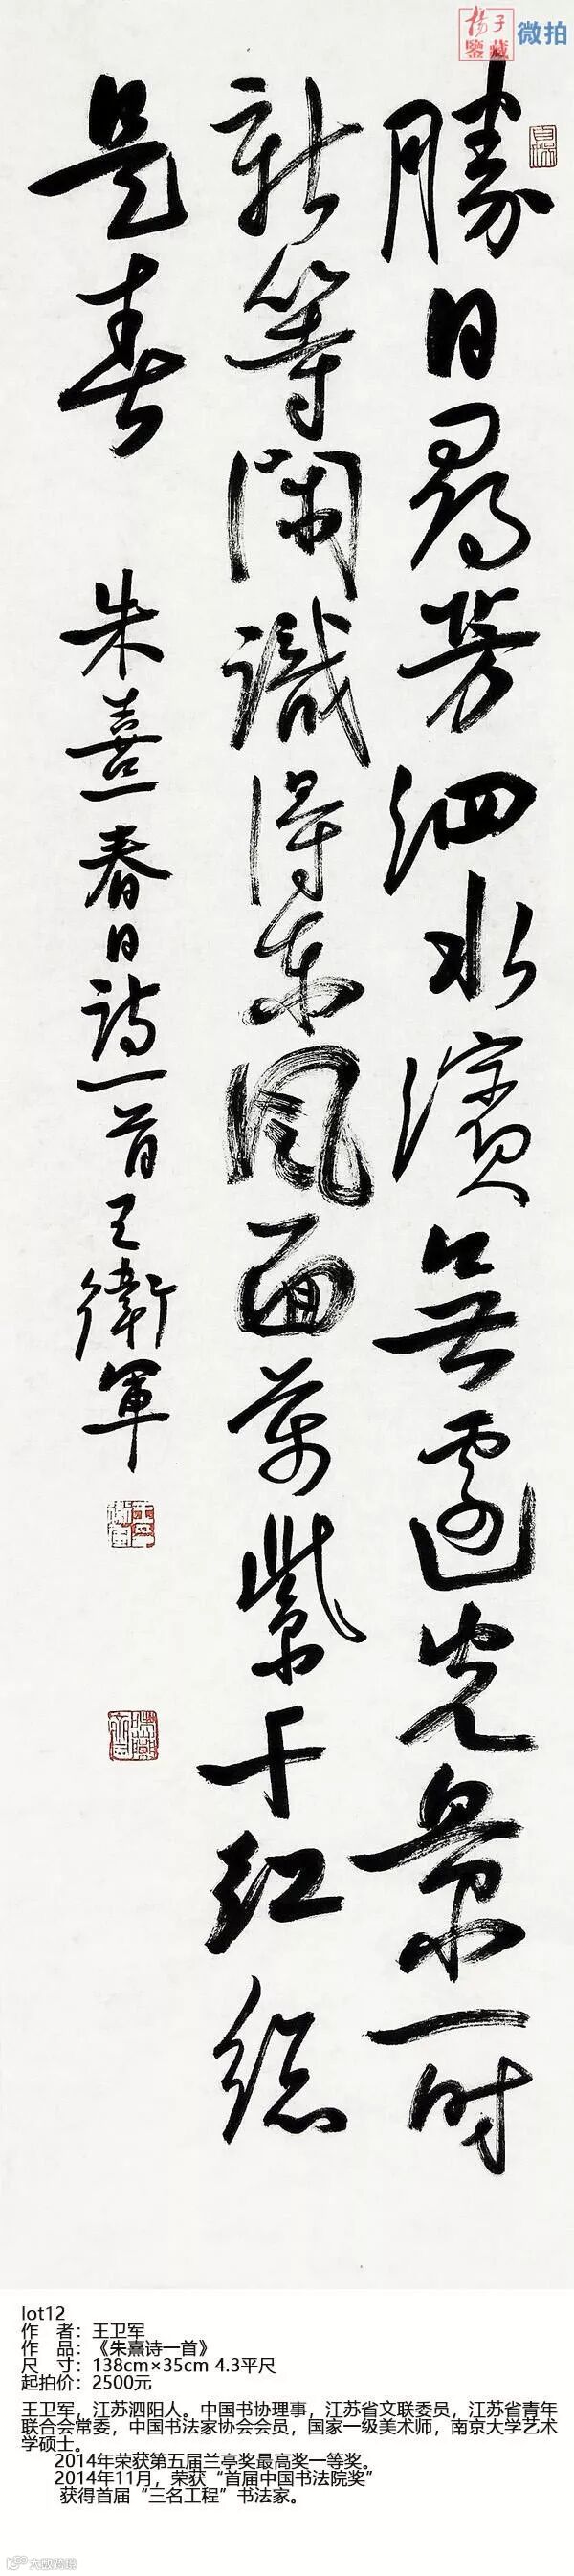 揚子
鑒藏
微拍
勝日尋芳泗水濱無邊光景一时
新等闲識得东風面萬紫千红總
是春
朱熹春日詩一首王衛軍
lot12
作 者：王卫军
作 品：《朱熹诗一首》
尺 寸：138cm×35cm 4.3平尺
起拍价：2500元
王卫军，江苏泗阳人。中国书协理事，江苏省文联委员，江苏省青年
联合会常委，中国书法家协会会员，国家一级美术师，南京大学艺术
学硕士。
2014年荣获第五届兰亭奖最高奖一等奖。
2014年11月，荣获“首届中国书法院奖”
获得首届“三名工程”书法家。